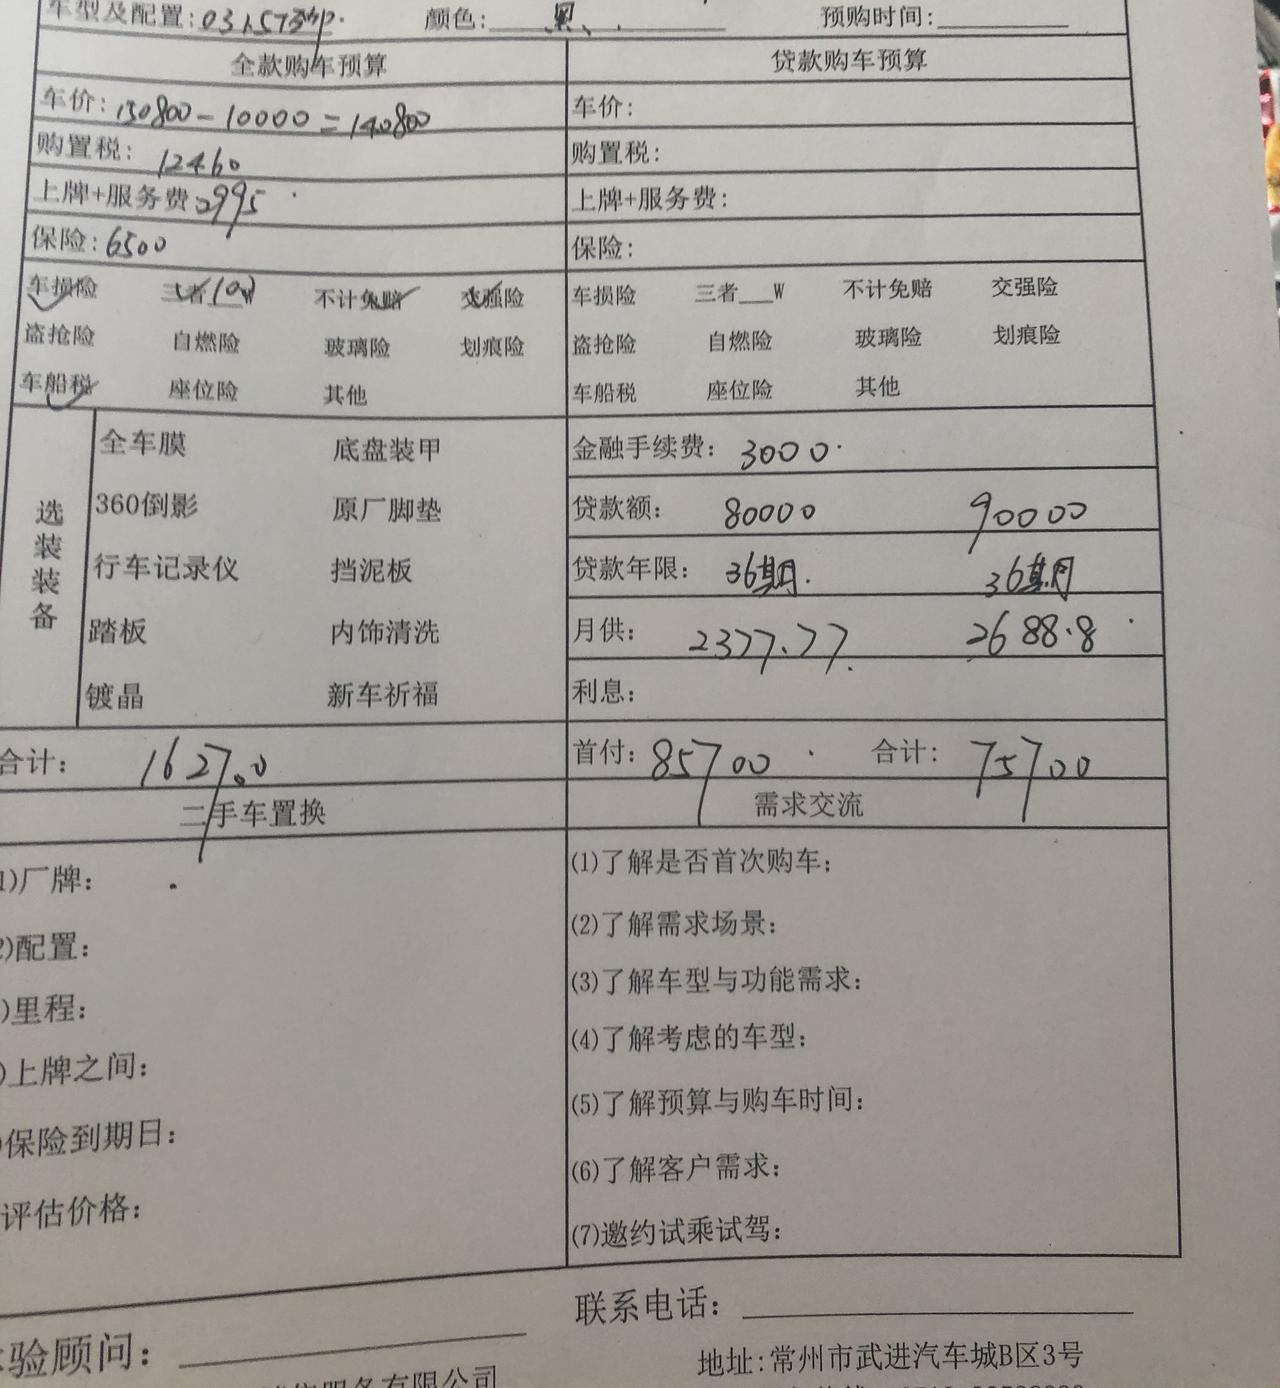 车型及配置: 031.5T
颜色: 黑
预购时间:
全款购车预算
贷款购车预算
车价: 150800-10000=140800
车价:
购置税: 12460
购置税:
上牌+服务费 2995
上牌+服务费:
保险: 6500
保险:
车损险 三者10W 不计免赔 交强险
车损险 三者___W 不计免赔 交强险
盗抢险 自燃险 玻璃险 划痕险
盗抢险 自燃险 玻璃险 划痕险
车船税 座位险 其他
车船税 座位险 其他
选装装备
全车膜 底盘装甲
360倒影 原厂脚垫
行车记录仪 挡泥板
踏板 内饰清洗
镀晶 新车祈福
金融手续费: 3000
贷款额: 80000 90000
贷款年限: 36期 36期
月供: 2377.77 2688.8
利息:
合计: 162700
首付: 85700 合计: 75700
二手车置换
需求交流
1)厂牌:
2)配置:
)里程:
)上牌之间:
)保险到期日:
评估价格:
(1)了解是否首次购车;
(2)了解需求场景:
(3)了解车型与功能需求:
(4)了解考虑的车型:
(5)了解预算与购车时间:
(6)了解客户需求:
(7)邀约试乘试驾:
联系电话:
验顾问:
地址:常州市武进汽车城B区3号
服务有限公司